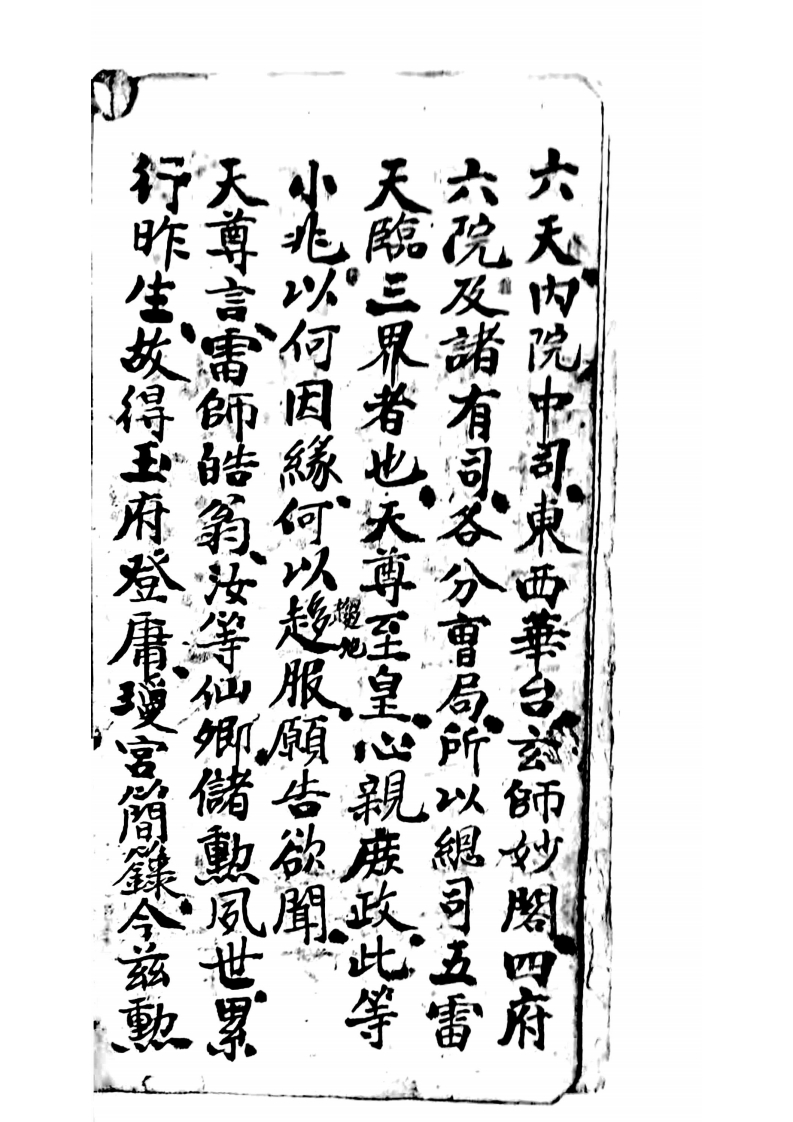 六天内院中司東西華台玄師妙閣四府
六院及諸有司各分曹局所以總司五雷
天臨三界者也天尊至皇心親庶政此等
小兆以何因緣何以趍服願告欲聞
天尊言雷師皓翁汝等仙卿儲勲夙世累
行昨生故得玉府登庸瓊宮簡籙今兹勲